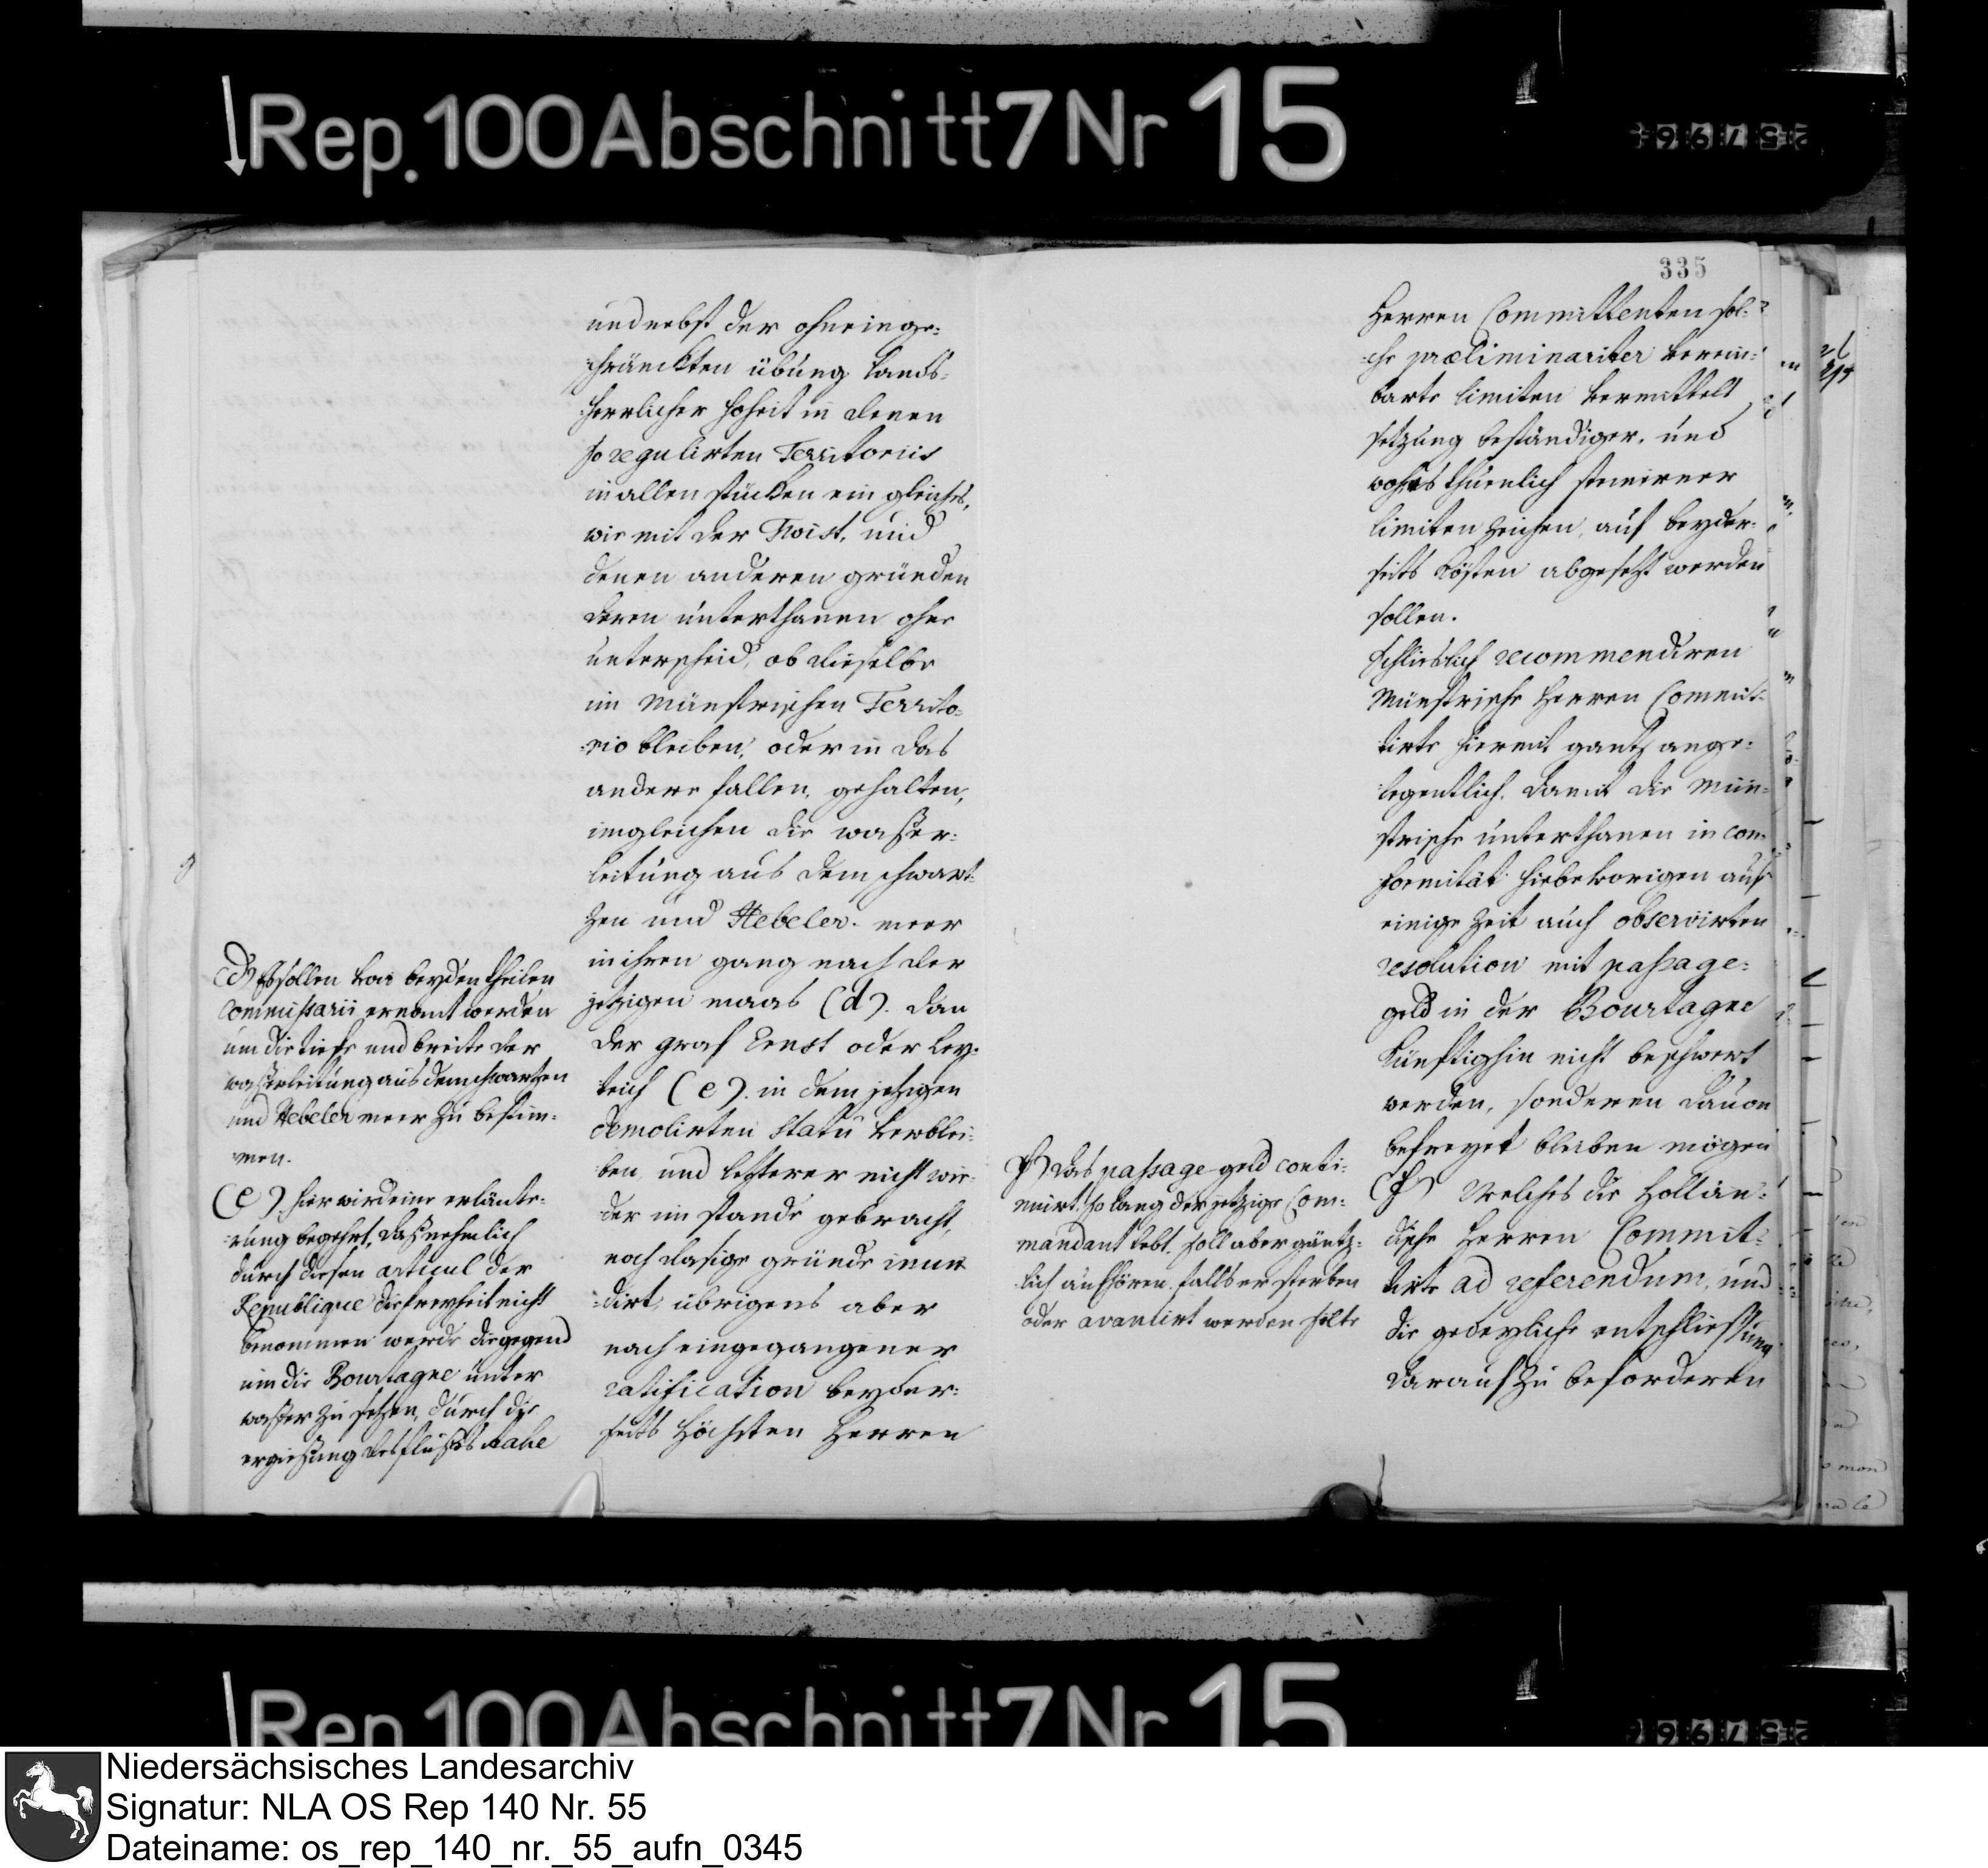 Rep. 100 Abschnitt 7 Nr 15
335
und nebst der ohneinge-
schränckten übung lands-
herrlicher hoheit in denen
so regulirten Territoriis
in allen stücken ein gleiches,
wie mit der Twist, und
denen anderen gründen
deren unterthanen ohne
unterscheid, ob dieselbe
im Münstrischen Territo-
rio bleiben, oder in das
andere fallen, gehalten,
imgleichen die waßer-
leitung aus dem schwart-
zen und Hebeler-meer
in ihren gang nach der
jetzigen maas (d). dan
der graf Ernst oder Ley-
teich (e). in dem jetzigen
demolirten statu verblei-
ben, und letzterer nicht wie-
der im stande gebracht,
noch dasige gründe inun-
dirt, übrigens aber
nach eingegangener
ratification beyder-
seits Höchsten Herren
(d) Es sollen von beyden theilen
Commissarii ernant werden
um die tiefe und breite der
waßerleitung aus dem schwartzen
und Hebeler meer zu bestim-
men.
(e). hier wird eine erläute-
rung begehrt, daß nehmlich
durch diesen articul der
Republique die freyheit nicht
benommen werde die gegend
um die Bourtagne unter
waßer zu setzen, durch die
ergießung des flußes Aahe
Herren Committenten sol-
che præliminariter verein-
barte limiten vermittelst
setzung beständiger, und
wohes thuenlich steinerner
limiten zeichen, auf beyder-
seits kösten abgesetzt werden
sollen.
Schlieslich recommendiren
Münstrische Herren Commit-
tirte hiermit gantz ange-
legentlich, damit die Mün-
strische unterthanen in con-
formität hiebevorigen auf
einige zeit auch observirten
resolution mit passage-
geld in der Bourtagne
künftighin nicht beschwert
werden, sonderen davon
befreyet bleiben mögen
(f) Welches die Hollän-
dische Herren Commit-
tirte ad referendum, und
die gedeyliche entschließung
darauf zu beforderen
(f) das passage-geld conti-
nuirt so lang der jetzige Com-
mandant lebt, soll aber gäntz-
lich aufhören, falls er sterben
oder avancirt werden solte
Rep. 100 Abschnitt 7 Nr 15
Niedersächsisches Landesarchiv
Signatur: NLA OS Rep 140 Nr. 55
Dateiname: os_rep_140_nr._55_aufn_0345